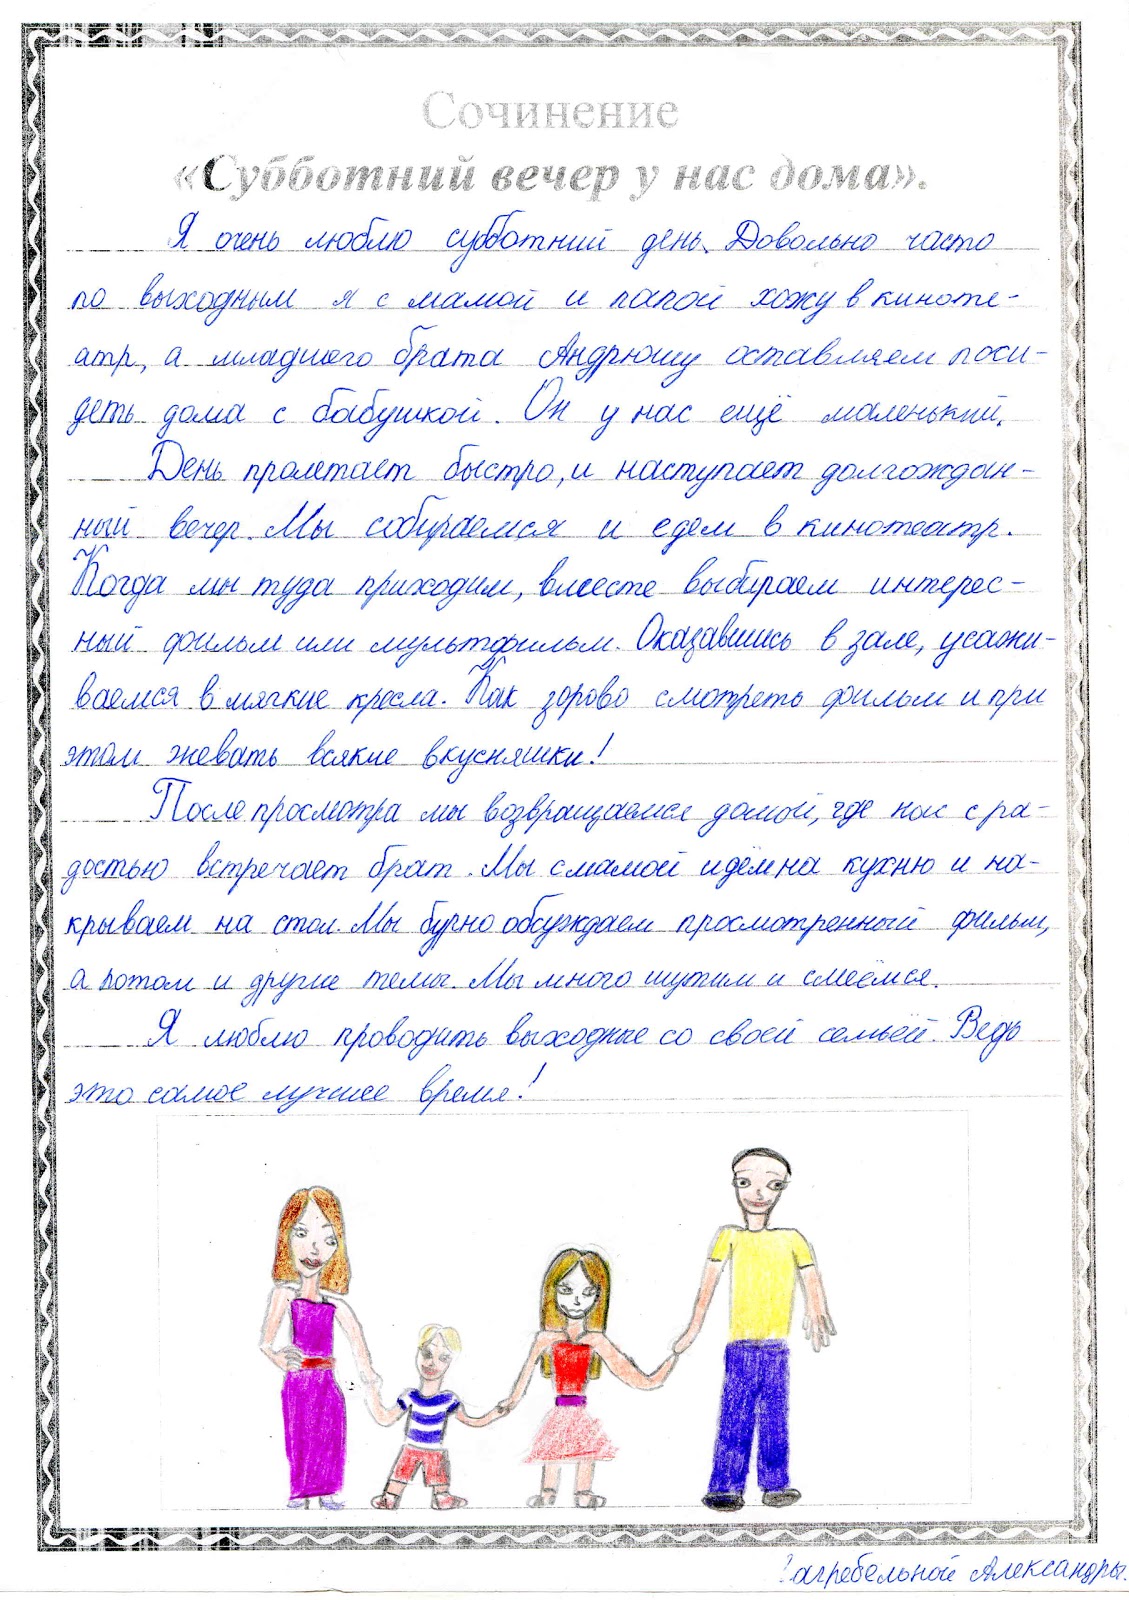 Сочинение
«Субботний вечер у нас дома».
Я очень люблю субботний день. Довольно часто
по выходным я с мамой и папой хожу в киноте-
атр, а младшего брата Андрюшу оставляем поси-
деть дома с бабушкой. Он у нас ещё маленький.
День пролетает быстро, и наступает долгождан-
ный вечер. Мы собираемся и едем в кинотеатр.
Когда мы туда приходим, вместе выбираем интерес-
ный фильм или мультфильм. Оказавшись в зале, усажи-
ваемся в мягкие кресла. Как здорово смотреть фильм и при
этом жевать всякие вкусняшки!
После просмотра мы возвращаемся домой, где нас с ра-
достью встречает брат. Мы с мамой идём на кухню и на-
крываем на стол. Мы бурно обсуждаем просмотренный фильм,
а потом и другие темы. Мы много шутим и смеёмся.
Я люблю проводить выходные со своей семьёй. Ведь
это самое лучшее время!
Загребельной Александры.